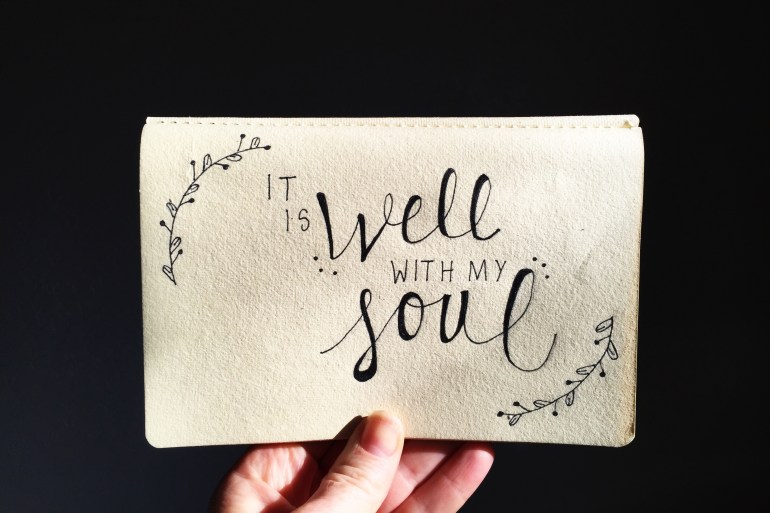 IT
IS Well
WITH MY
Soul